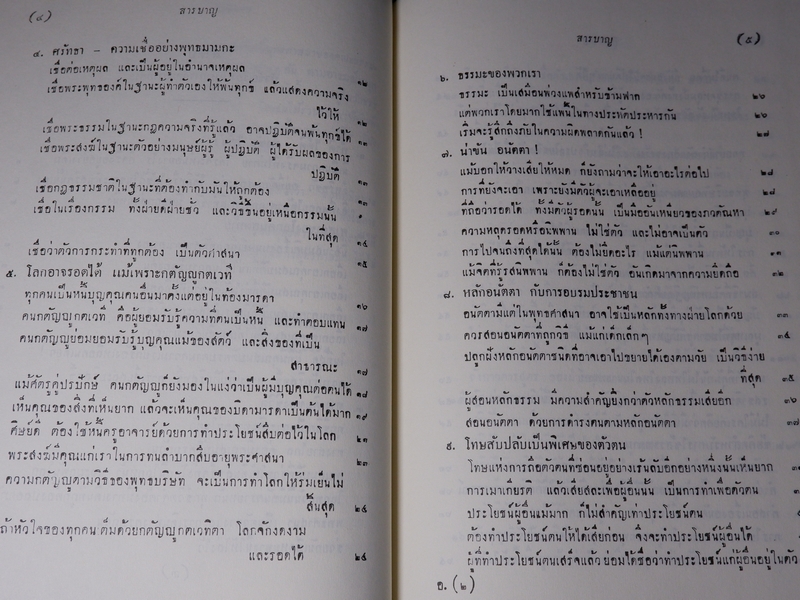 (๔) สารบาญ
๔. ศรัทธา – ความเชื่ออย่างพุทธมามกะ
เชื่อต่อเหตุผล และเป็นผู้อยู่ในอำนาจเหตุผล ๑๒
เชื่อพระพุทธองค์ในฐานะผู้ทำตัวเองให้พ้นทุกข์ แล้วแสดงความจริง
ไว้ให้ ๑๒
เชื่อพระธรรมในฐานะกฎความจริงที่รู้แล้ว อาจปฏิบัติจนพ้นทุกข์ได้ ๑๓
เชื่อพระสงฆ์ในฐานะตัวอย่างมนุษย์ผู้รู้ ผู้ปฏิบัติ ผู้ได้รับผลของการ
ปฏิบัติ ๑๓
เชื่อกฎธรรมชาติในฐานะที่ต้องทำกับมันให้ถูกต้อง ๑๓
เชื่อในเรื่องกรรม ทั้งฝ่ายดีฝ่ายชั่ว และวิธีขึ้นอยู่เหนือกรรมนั้น
ในที่สุด ๑๔
เชื่อว่าตัวการกระทำที่ถูกต้อง เป็นตัวศาสนา ๑๕
๕. โลกอาจรอดได้ แม้เพราะกตัญญูกตเวที
ทุกคนเป็นหนี้บุญคุณคนอื่นมาตั้งแต่อยู่ในท้องมารดา ๑๖
คนกตัญญูกตเวที คือผู้ยอมรับรู้ความที่ตนเป็นหนี้ และทำตอบแทน ๑๗
คนกตัญญูย่อมยอมรับรู้บุญคุณแม้ของสัตว์ และสิ่งของที่เป็น
สาธารณะ ๑๗
แม้ศัตรูคู่ปรปักษ์ คนกตัญญูก็ยังมองในแง่ว่าเป็นผู้มีบุญคุณต่อตนได้ ๑๘
เห็นคุณของสิ่งที่เห็นยาก แล้วจะเห็นคุณของบิดามารดาเป็นต้นได้มาก ๑๙
ศิษย์ดี ต้องใช้หนี้ครูอาจารย์ด้วยการทำประโยชน์สืบต่อไว้ในโลก ๒๑
พระสงฆ์มีคุณแก่เราในการทนลำบากสืบอายุพระศาสนา ๒๓
ความกตัญญูตามวิธีของพุทธบริษัท จะเป็นการทำโลกให้ร่มเย็นไม่
สิ้นสุด ๒๔
ถ้าหัวใจของทุกคน เต็มด้วยกตัญญูกตเวทิตา โลกจักงดงาม
และรอดได้ ๒๔
สารบาญ (๕)
๖. ธรรมะของพวกเรา
ธรรมะ เป็นเสมือนพ่วงแพสำหรับข้ามฟาก ๒๖
แต่พวกเราโดยมากใช้แพนั้นในทางประหัตประหารกัน ๒๖
เริ่มจะรู้สึกถึงภัยในความผิดพลาดกันแล้ว ! ๒๗
๗. น่าขัน อนัตตา !
แม้บอกให้วางเสียให้หมด ก็ยังถามว่าจะให้เอาอะไรต่อไป ๒๘
การที่ยังจะเอา เพราะยังมีตัวผู้จะเอาเหลืออยู่ ๒๘
ที่ถือว่ารอดได้ ทั้งมีตัวผู้รอดนั้น เป็นมืออันเหนียวของภวตัณหา ๒๙
ความหลุดรอดหรือนิพพาน ไม่ใช่ตัว และไม่อาจเป็นตัว ๓๐
การไปจนถึงที่สุดได้นั้น ต้องไม่ยึดอะไร แม้แต่นิพพาน ๓๑
แม้จิตที่รู้รสนิพพาน ก็ต้องไม่ใช่ตัว อันเกิดมาจากความยึดถือ ๓๒
๘. หลักอนัตตา กับการอบรมประชาชน
อนัตตามีแต่ในพุทธศาสนา อาจใช้เป็นหลักทั้งทางฝ่ายโลกด้วย ๓๓
ควรสอนอนัตตาที่ถูกวิธี แม้แก่เด็กเล็กๆ ๓๔
ปลูกฝังหลักอนัตตาชนิดที่อาจเอาไปขยายได้เองตามวัย เป็นวิธีง่าย
ที่สุด ๓๕
ผู้สอนหลักธรรม มีความสำคัญยิ่งกว่าตัวหลักธรรมเสียอีก ๓๖
สอนอนัตตา ด้วยการดำรงตนตามหลักอนัตตา ๓๗
๙. โทษสับปลับเป็นพิเศษของตัวตน
โทษแห่งการถือตัวตนที่ซ่อนอยู่อย่างเร้นลับอีกอย่างหนึ่งนั้นเห็นยาก
การเมาเกียรติ แล้วเสียสละเพื่อผู้อื่นนั้น เป็นการทำเพื่อตัวตน
ประโยชน์ผู้อื่นแม้มาก ก็ไม่สำคัญเท่าประโยชน์ตน
ต้องทำประโยชน์ตนให้ได้เสียก่อน จึงจะทำประโยชน์ผู้อื่นได้
ผู้ที่ทำประโยชน์ตนเสร็จแล้ว ย่อมได้ชื่อว่าทำประโยชน์แก่ผู้อื่นอยู่ในตัว
อ. (๒)